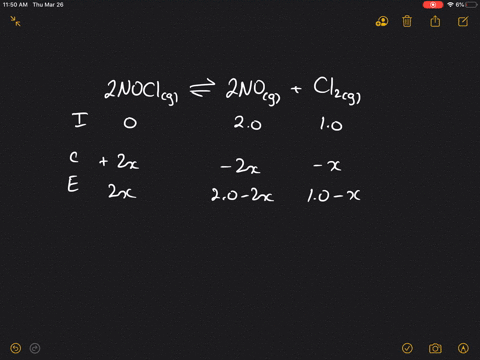 11:50 AM Thu Mar 26
6%
2NOCl(g) ⇌ 2NO(g) + Cl2(g)
I 0 2.0 1.0
C + 2x - 2x - x
E 2x 2.0 - 2x 1.0 - x